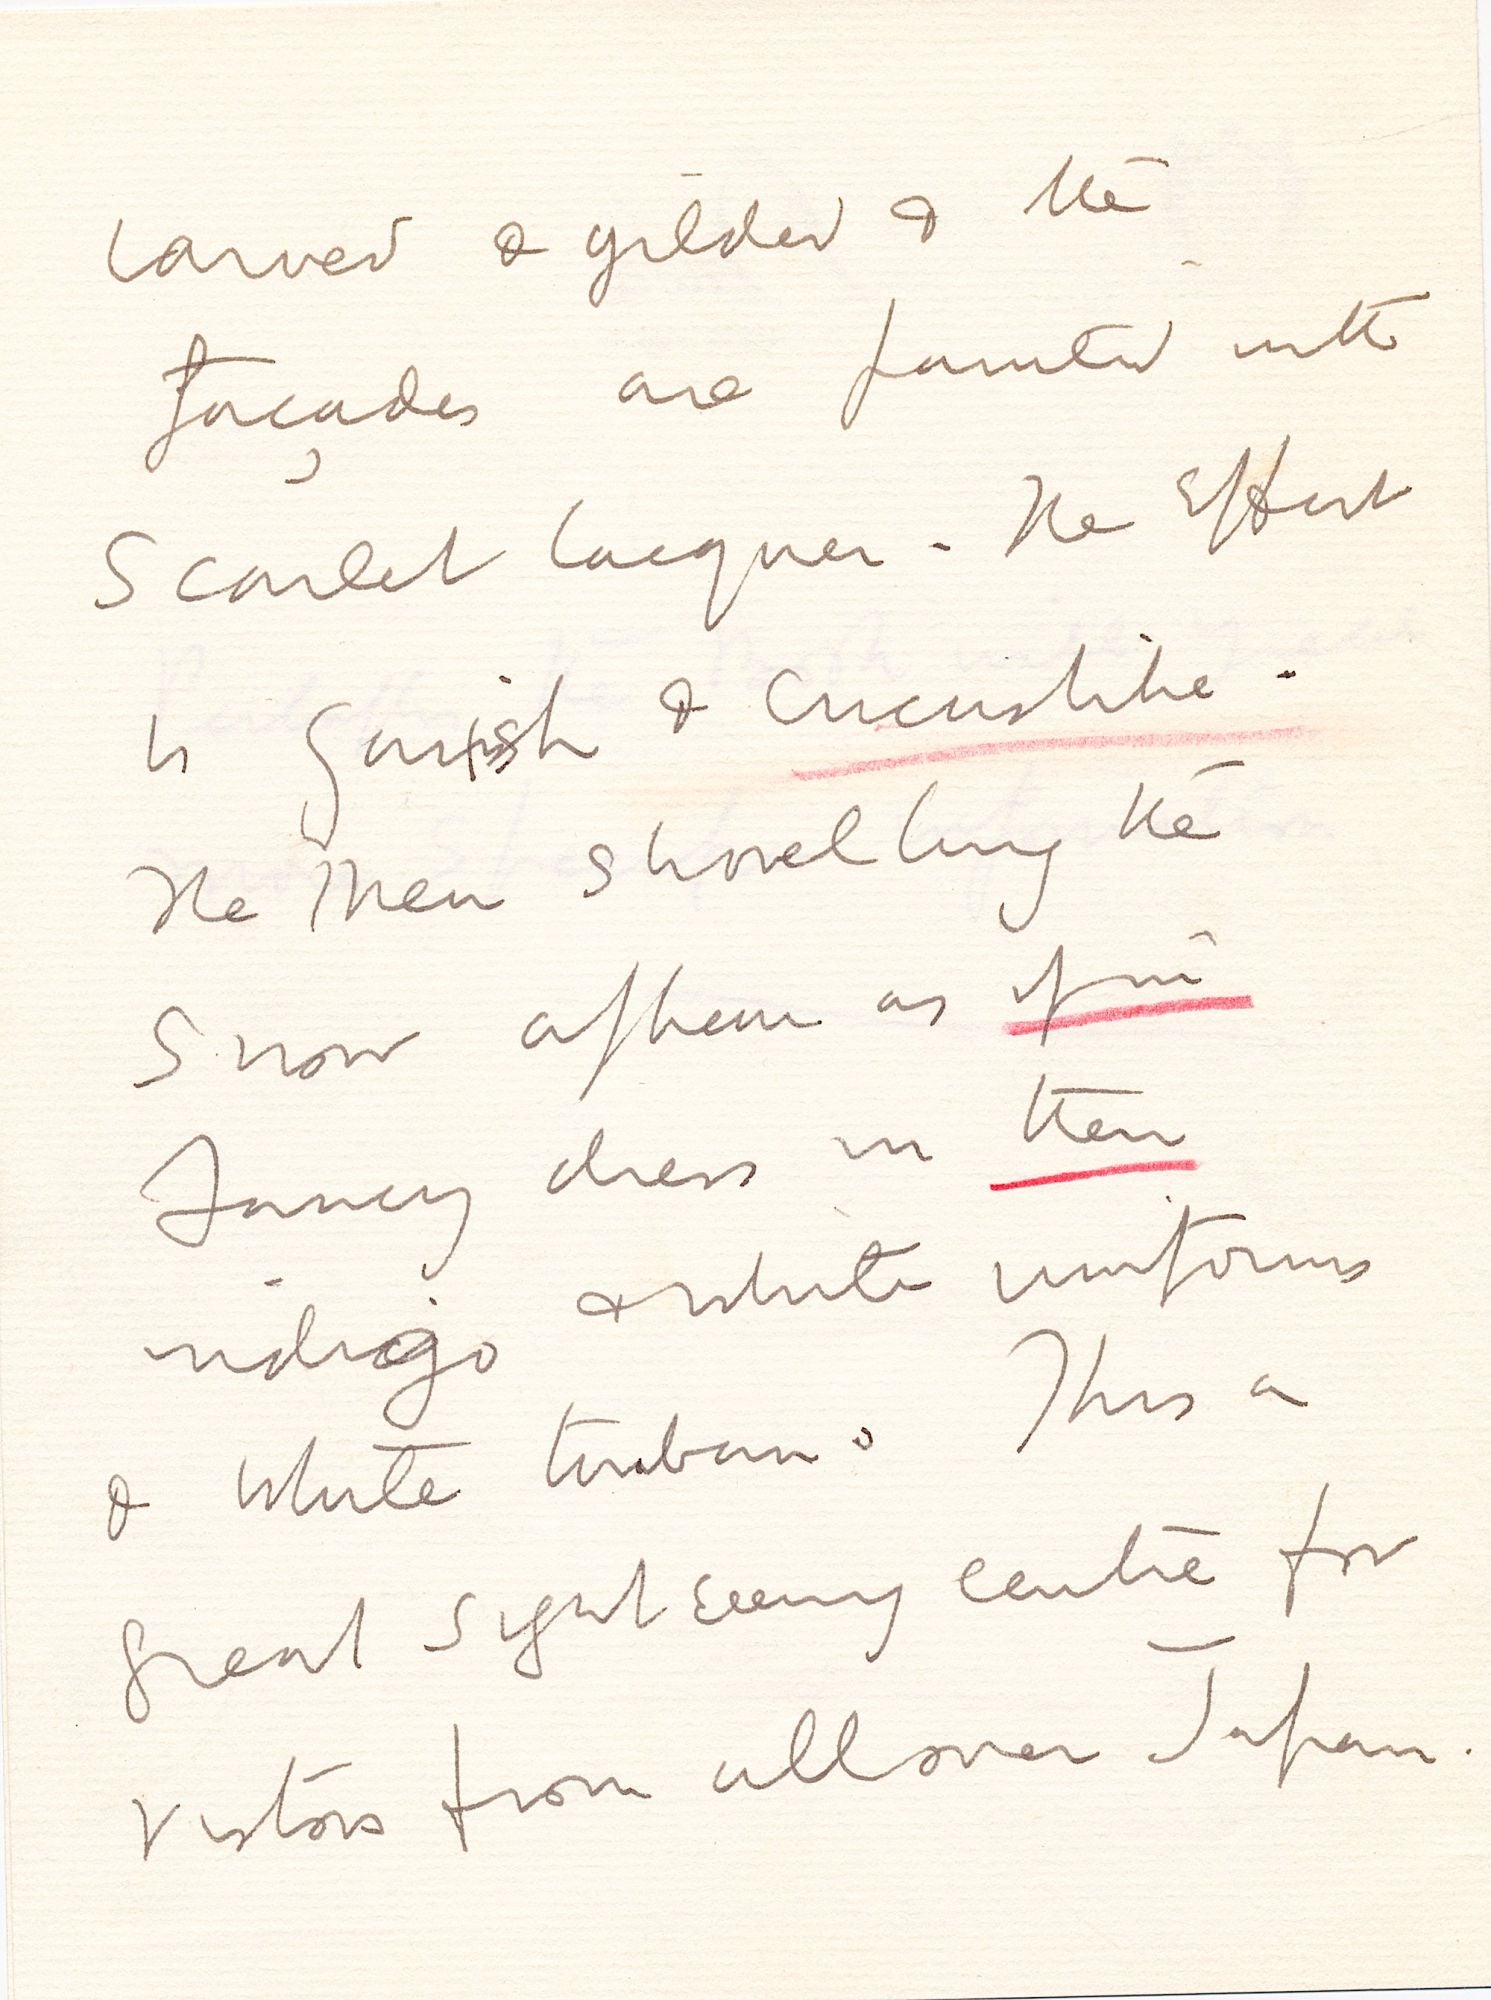 carved & gilded & the
façades are painted with
Scarlet lacquer. The Effect
is garish & circuslike.
The Men shovelling the
Snow appear as if in
Fancy dress in their
indigo & white uniforms
& white turban. This a
great sightseeing centre for
visitors from all over Japan.